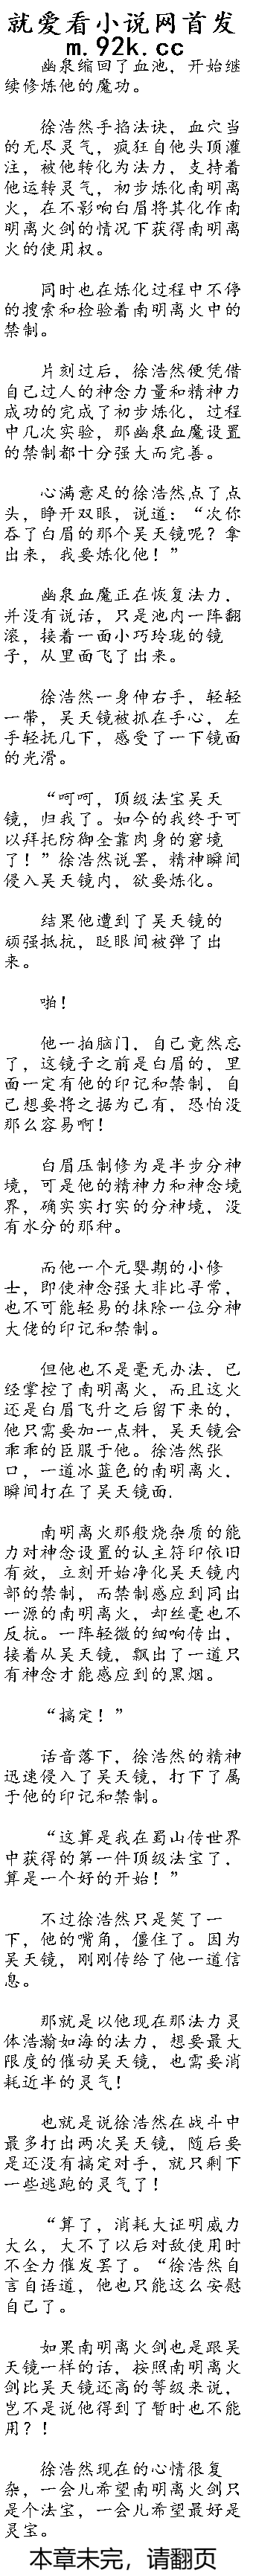 就爱看小说网首发
m.92k.cc
幽泉缩回了血池，开始继
续修炼他的魔功。
徐浩然手掐法诀，血穴当
的无尽灵气，疯狂自他头顶灌
注，被他转化为法力，支持着
他运转灵气，初步炼化南明离
火，在不影响白眉将其化作南
明离火剑的情况下获得南明离
火的使用权。
同时也在炼化过程中不停
的搜索和检验着南明离火中的
禁制。
片刻过后，徐浩然便凭借
自己过人的神念力量和精神力
成功的完成了初步炼化，过程
中几次实验，那幽泉血魔设置
的禁制都十分强大而完善。
心满意足的徐浩然点了点
头，睁开双眼，说道：“次你
吞了白眉的那个昊天镜呢？拿
出来，我要炼化他！”
幽泉血魔正在恢复法力，
并没有说话，只是池内一阵翻
滚，接着一面小巧玲珑的镜
子，从里面飞了出来。
徐浩然一身伸右手，轻轻
一带，昊天镜被抓在手心，左
手轻抚几下，感受了一下镜面
的光滑。
“呵呵，顶级法宝昊天
镜，归我了。如今的我终于可
以拜托防御全靠肉身的窘境
了！”徐浩然说罢，精神瞬间
侵入昊天镜内，欲要炼化。
结果他遭到了昊天镜的
顽强抵抗，眨眼间被弹了出
来。
啪！
他一拍脑门，自己竟然忘
了，这镜子之前是白眉的，里
面一定有他的印记和禁制，自
己想要将之据为己有，恐怕没
那么容易啊！
白眉压制修为是半步分神
境，可是他的精神力和神念境
界，确实实打实的分神境，没
有水分的那种。
而他一个元婴期的小修
士，即使神念强大非比寻常，
也不可能轻易的抹除一位分神
大佬的印记和禁制。
但他也不是毫无办法，已
经掌控了南明离火，而且这火
还是白眉飞升之后留下来的，
他只需要加一点料，昊天镜会
乖乖的臣服于他。徐浩然张
口，一道冰蓝色的南明离火，
瞬间打在了昊天镜面.
南明离火那般烧杂质的能
力对神念设置的认主符印依旧
有效，立刻开始净化昊天镜内
部的禁制，而禁制感应到同出
一源的南明离火，却丝毫也不
反抗。一阵轻微的细响传出，
接着从昊天镜，飘出了一道只
有神念才能感应到的黑烟。
“搞定！”
话音落下，徐浩然的精神
迅速侵入了昊天镜，打下了属
于他的印记和禁制。
“这算是我在蜀山传世界
中获得的第一件顶级法宝了，
算是一个好的开始！”
不过徐浩然只是笑了一
下，他的嘴角，僵住了。因为
昊天镜，刚刚传给了他一道信
息。
那就是以他现在那法力灵
体浩瀚如海的法力，想要最大
限度的催动昊天镜，也需要消
耗近半的灵气！
也就是说徐浩然在战斗中
最多打出两次昊天镜，随后要
是还没有搞定对手，就只剩下
一些逃跑的灵气了！
“算了，消耗大证明威力
大么，大不了以后对敌使用时
不全力催发罢了。“徐浩然自
言自语道，他也只能这么安慰
自己了。
如果南明离火剑也是跟昊
天镜一样的话，按照南明离火
剑比昊天镜还高的等级来说，
岂不是说他得到了暂时也不能
用？！
徐浩然现在的心情很复
杂，一会儿希望南明离火剑只
是个法宝，一会儿希望最好是
灵宝。
本章未完，请翻页